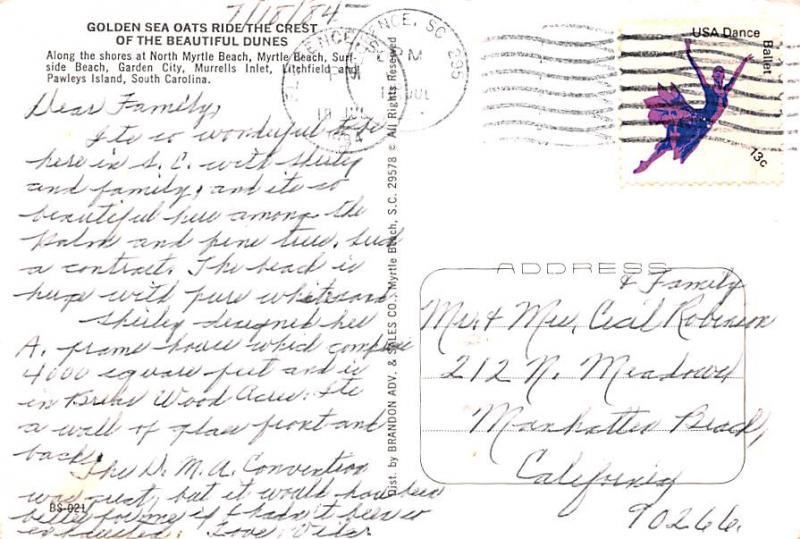 7/18/84
GOLDEN SEA OATS RIDE THE CREST
OF THE BEAUTIFUL DUNES
Along the shores at North Myrtle Beach, Myrtle Beach, Surf-
side Beach, Garden City, Murrells Inlet, Litchfield and
Pawleys Island, South Carolina.
Dear Family,
Its so wonderful to be
here in S.C. with Shirley
and family, and its so
beautiful here among the
Palm and pine trees. Such
a contrast. The beach is
huge with pure white sand
Shirley designed her
A. frame house which
4000 square feet and is
in Briar Wood Acres. Its
a wall of glass front and
back.
The D.M.A. Convention
was great, but it would have been
better for me if I hadn't been so
exhausted. Love,
BS-021
Dist. by BRANDON ADV. & SALES CO., Myrtle Beach, S.C. 29578 © All Rights Reserved
FLORENCE, SC 295
USA Dance
Ballet
13c
ADDRESS
& Family
Mr. & Mrs. Cecil Robinson
212 N. Meadows
Manhattan Beach,
California
90266.